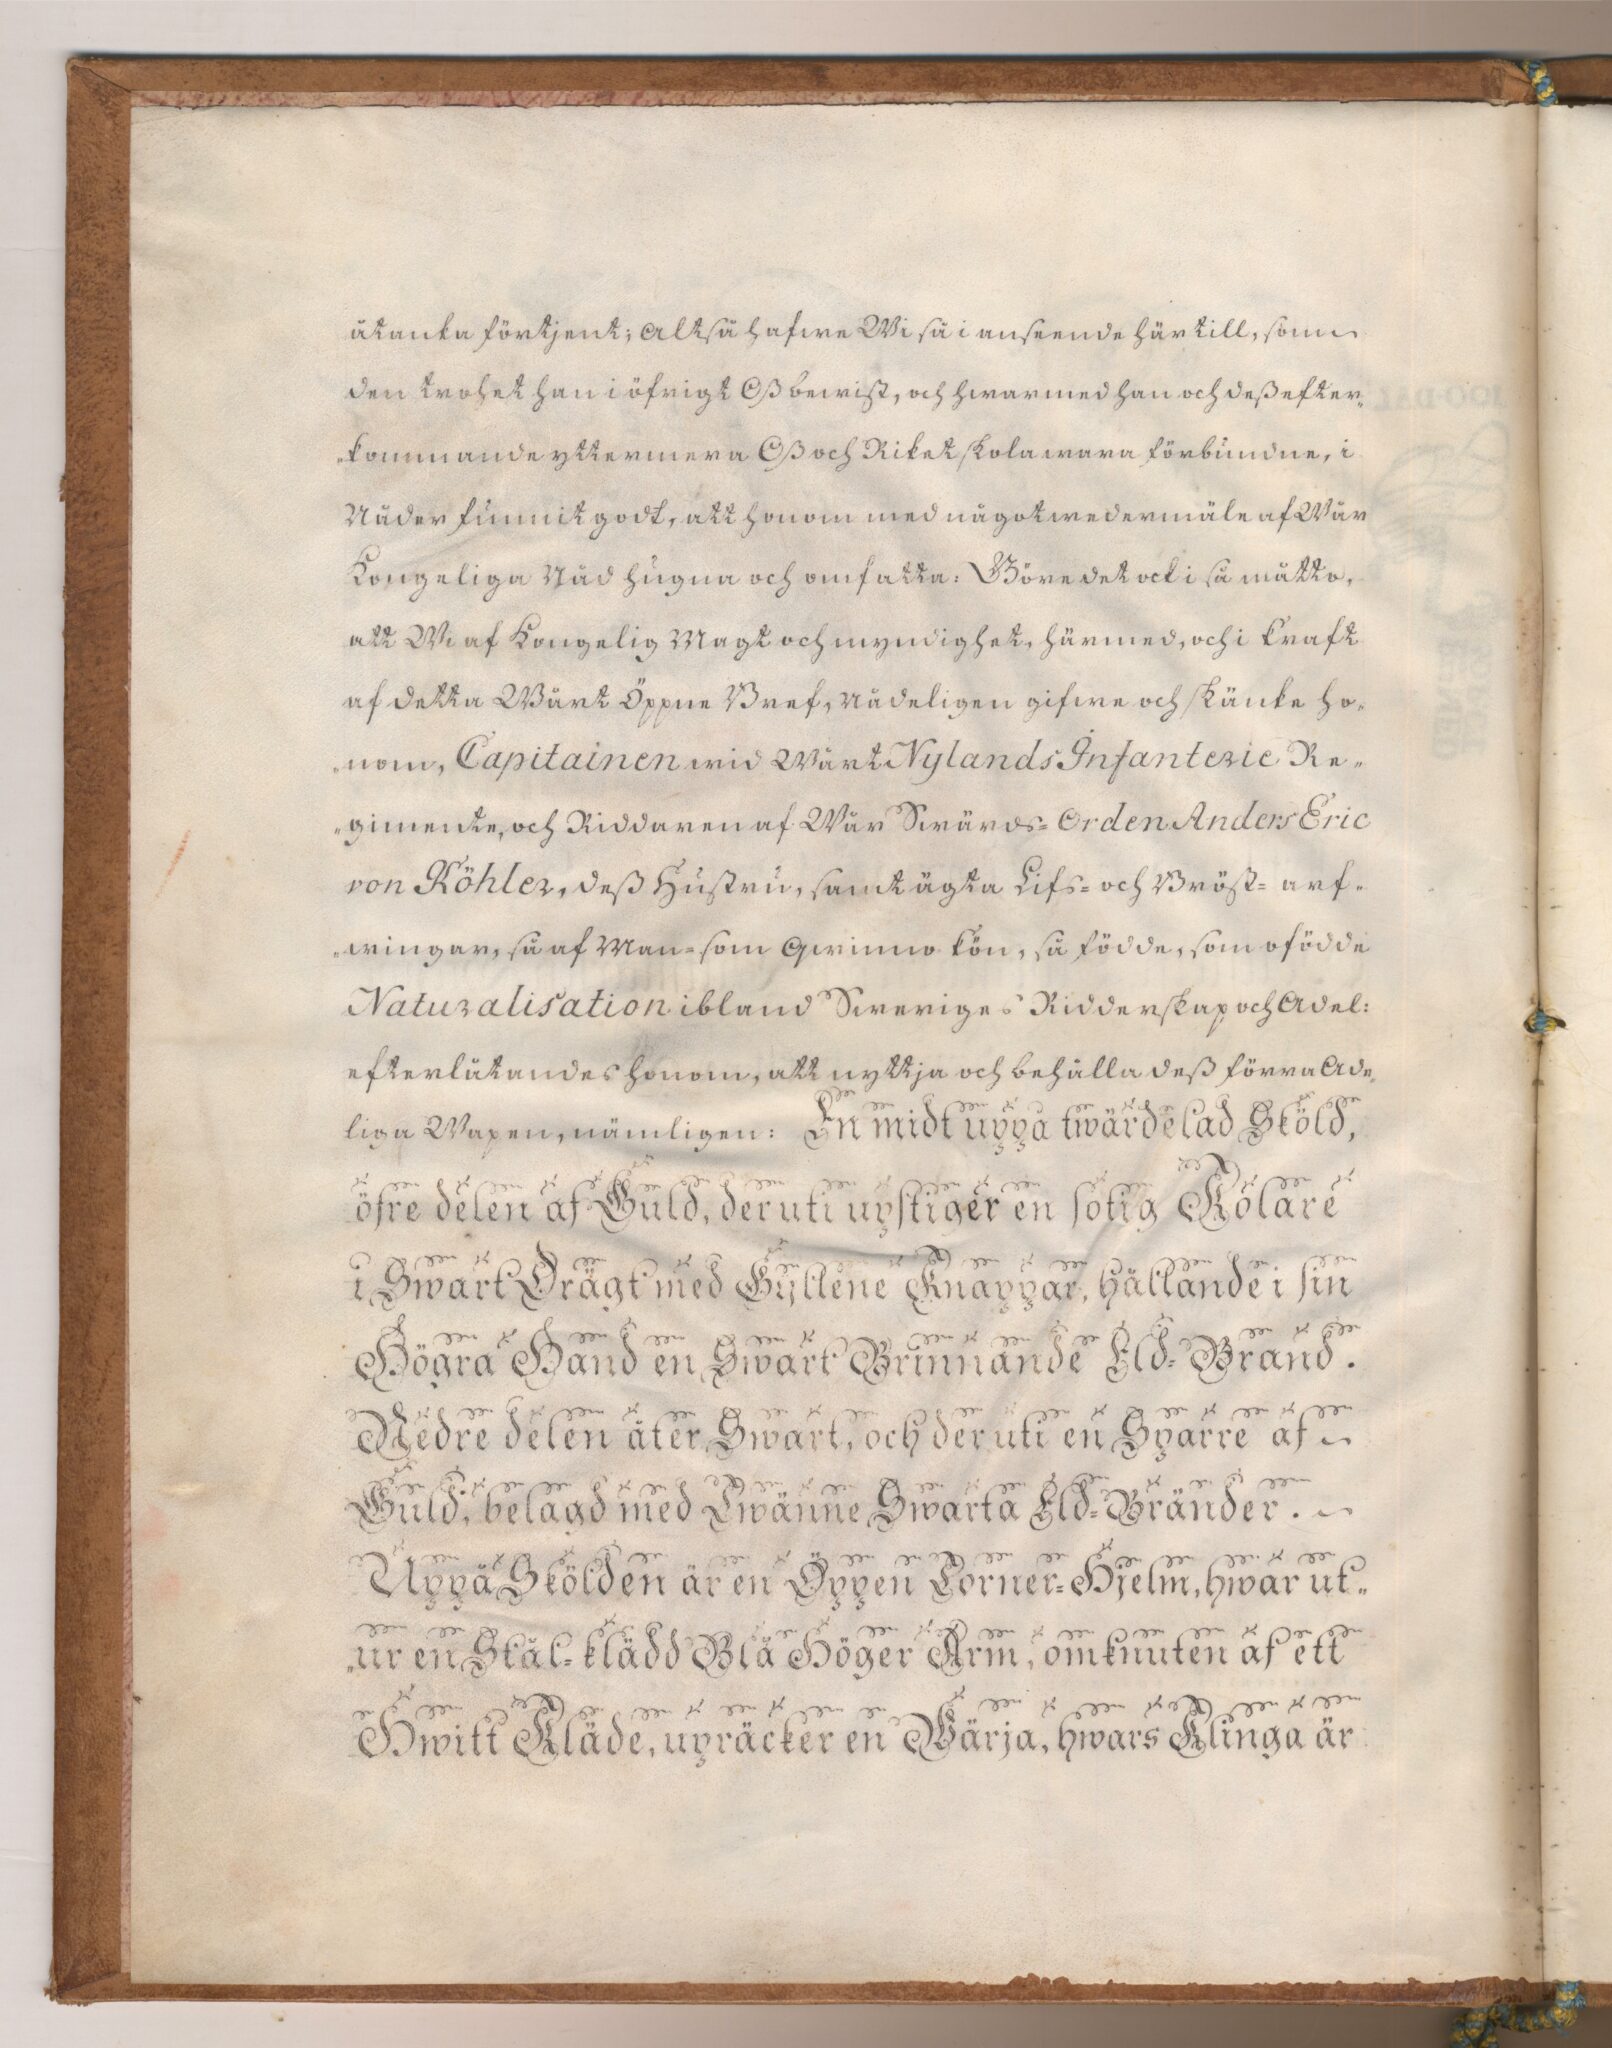 åtanka förtjent; Altså hafwe Wi så i anseende härtill, som
den trohet han i öfrigt Oß bewist, och hwarmed han och deß efter-
-kommande yttermera Oß och Riket skola wara förbundne, i
Nåder funnit godt, att honom med något wedermäle af Wår
Kongeliga Nåd hugna och omfatta: Göre det ock i så måtto,
att Wi af Kongelig Magt och myndighet, härmed, och i kraft
af detta Wårt Öppne Bref, Nådeligen gifwe och skänke ho-
-nom, Capitainen wid Wårt Nylands Infanterie Re-
-gimente, och Riddaren af Wår Swärds-Orden Anders Eric
von Köhler, deß Hustru, samt ägta Lifs- och Bröst-arf-
-wingar, så af Man- som Qwinno kön, så födde, som ofödde
Naturalisation ibland Sweriges Ridderskap och Adel:
efterlåtandes honom, att nyttja och behålla deß förra Ade-
liga Wapen, nämligen: En midt uppå twärdelad Sköld,
öfre delen af Guld, deruti upstiger en sotig Kolare
i Swart Drägt med Gyllene Knappar, hållande i sin
Högra Hand en Swart Brinnande Eld-Brand.
Nedre delen åter Swart, och deruti en Sparre af
Guld, belagd med Twänne Swarta Eld-Bränder.
Uppå Skölden är en Öppen Torner-Hjelm, hwar ut-
-ur en Stål-klädd Blå Höger Arm, omknuten af ett
Hwitt Kläde, upräcker en Wärja, hwars Klinga är